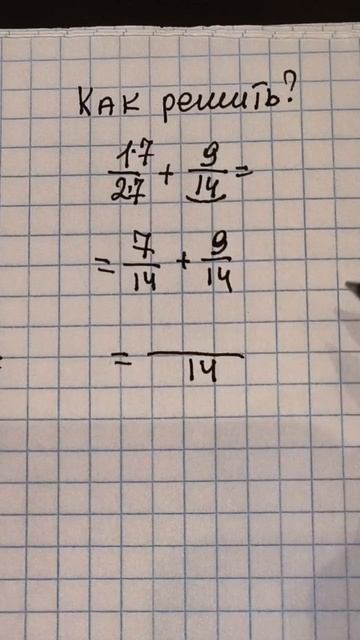 Как решить?
1·7/2·7 + 9/14 =
= 7/14 + 9/14
= /14